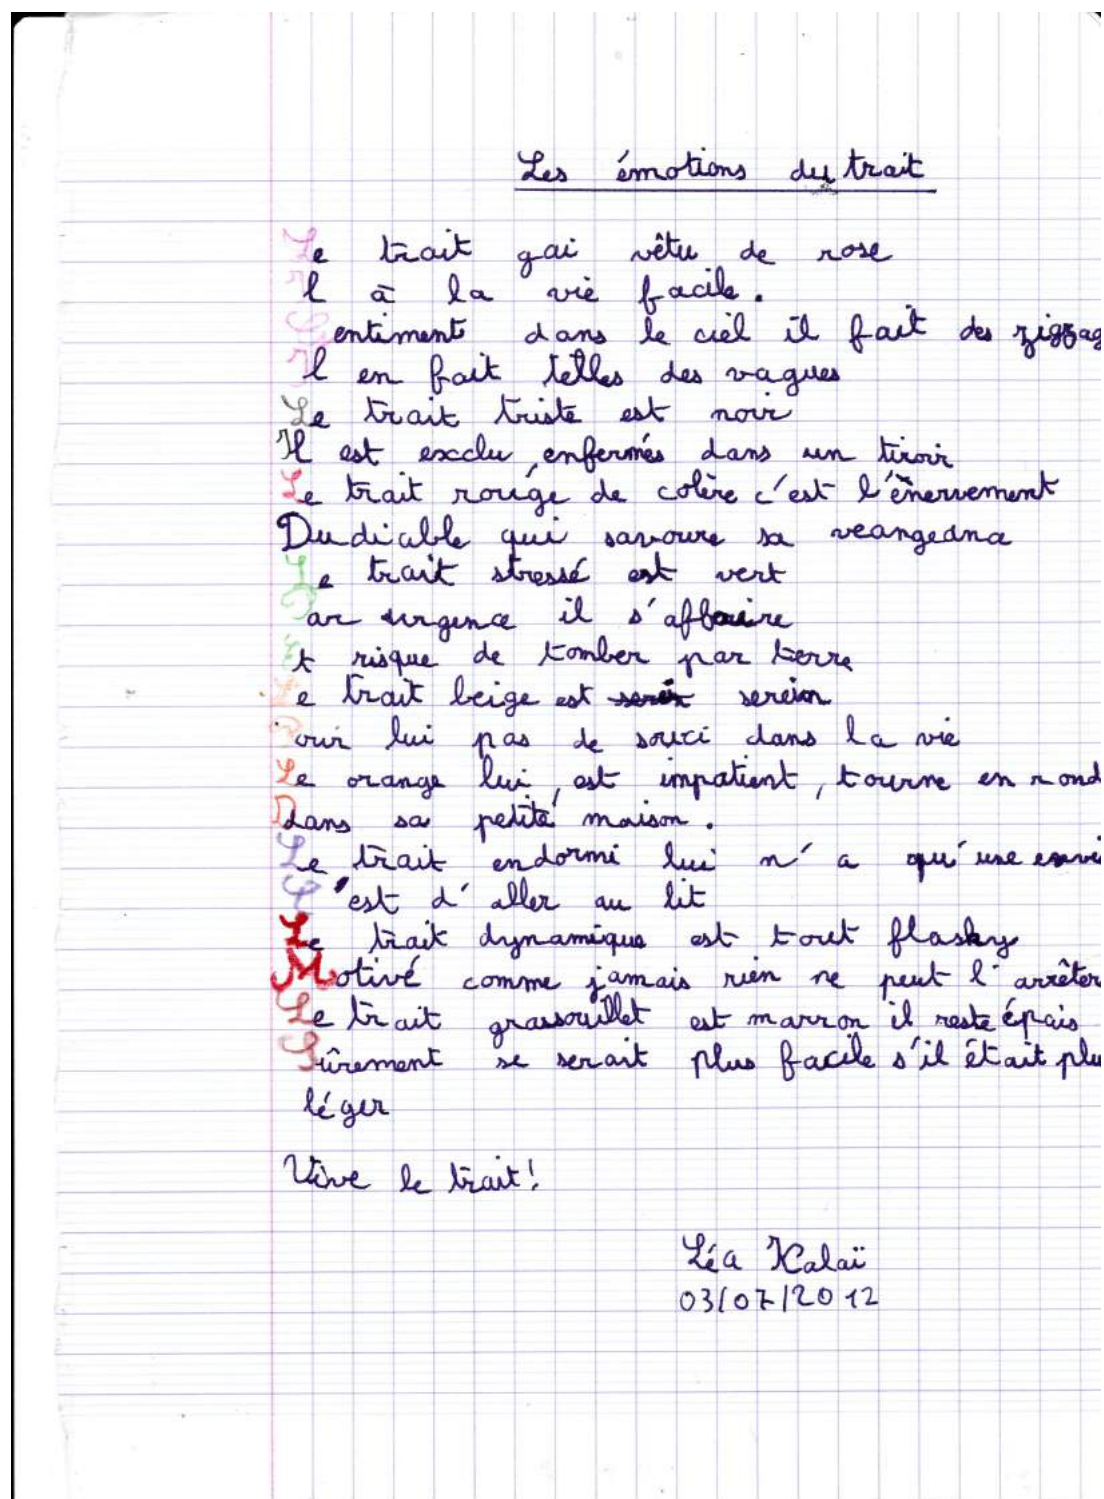 Les émotions du trait
Le trait gai vêtu de rose
Il à la vie facile.
Gentiment dans le ciel il fait des zigzag
Il en fait telles des vagues
Le trait triste est noir
Il est exclu, enfermés dans un tiroir
Le trait rouge de colère c'est l'énervement
Du diable qui savoure sa
Le trait stressé est vert
Par urgence il s'affaire
Et risque de tomber par terre
Le trait beige est serein
Pour lui pas de souci dans la vie
Le orange lui, est impatient, tourne en rond
Dans sa petite maison.
Le trait endormi lui n'a qu'une envi
C'est d'aller au lit
Le trait dynamique est tout flasky
Motivé comme jamais rien ne peut l'arrêter
Le trait grassouillet est marron il reste épais
Sûrement se serait plus facile s'il était plu
léger
Vive le trait!
Léa Kalaï
03/07/2012